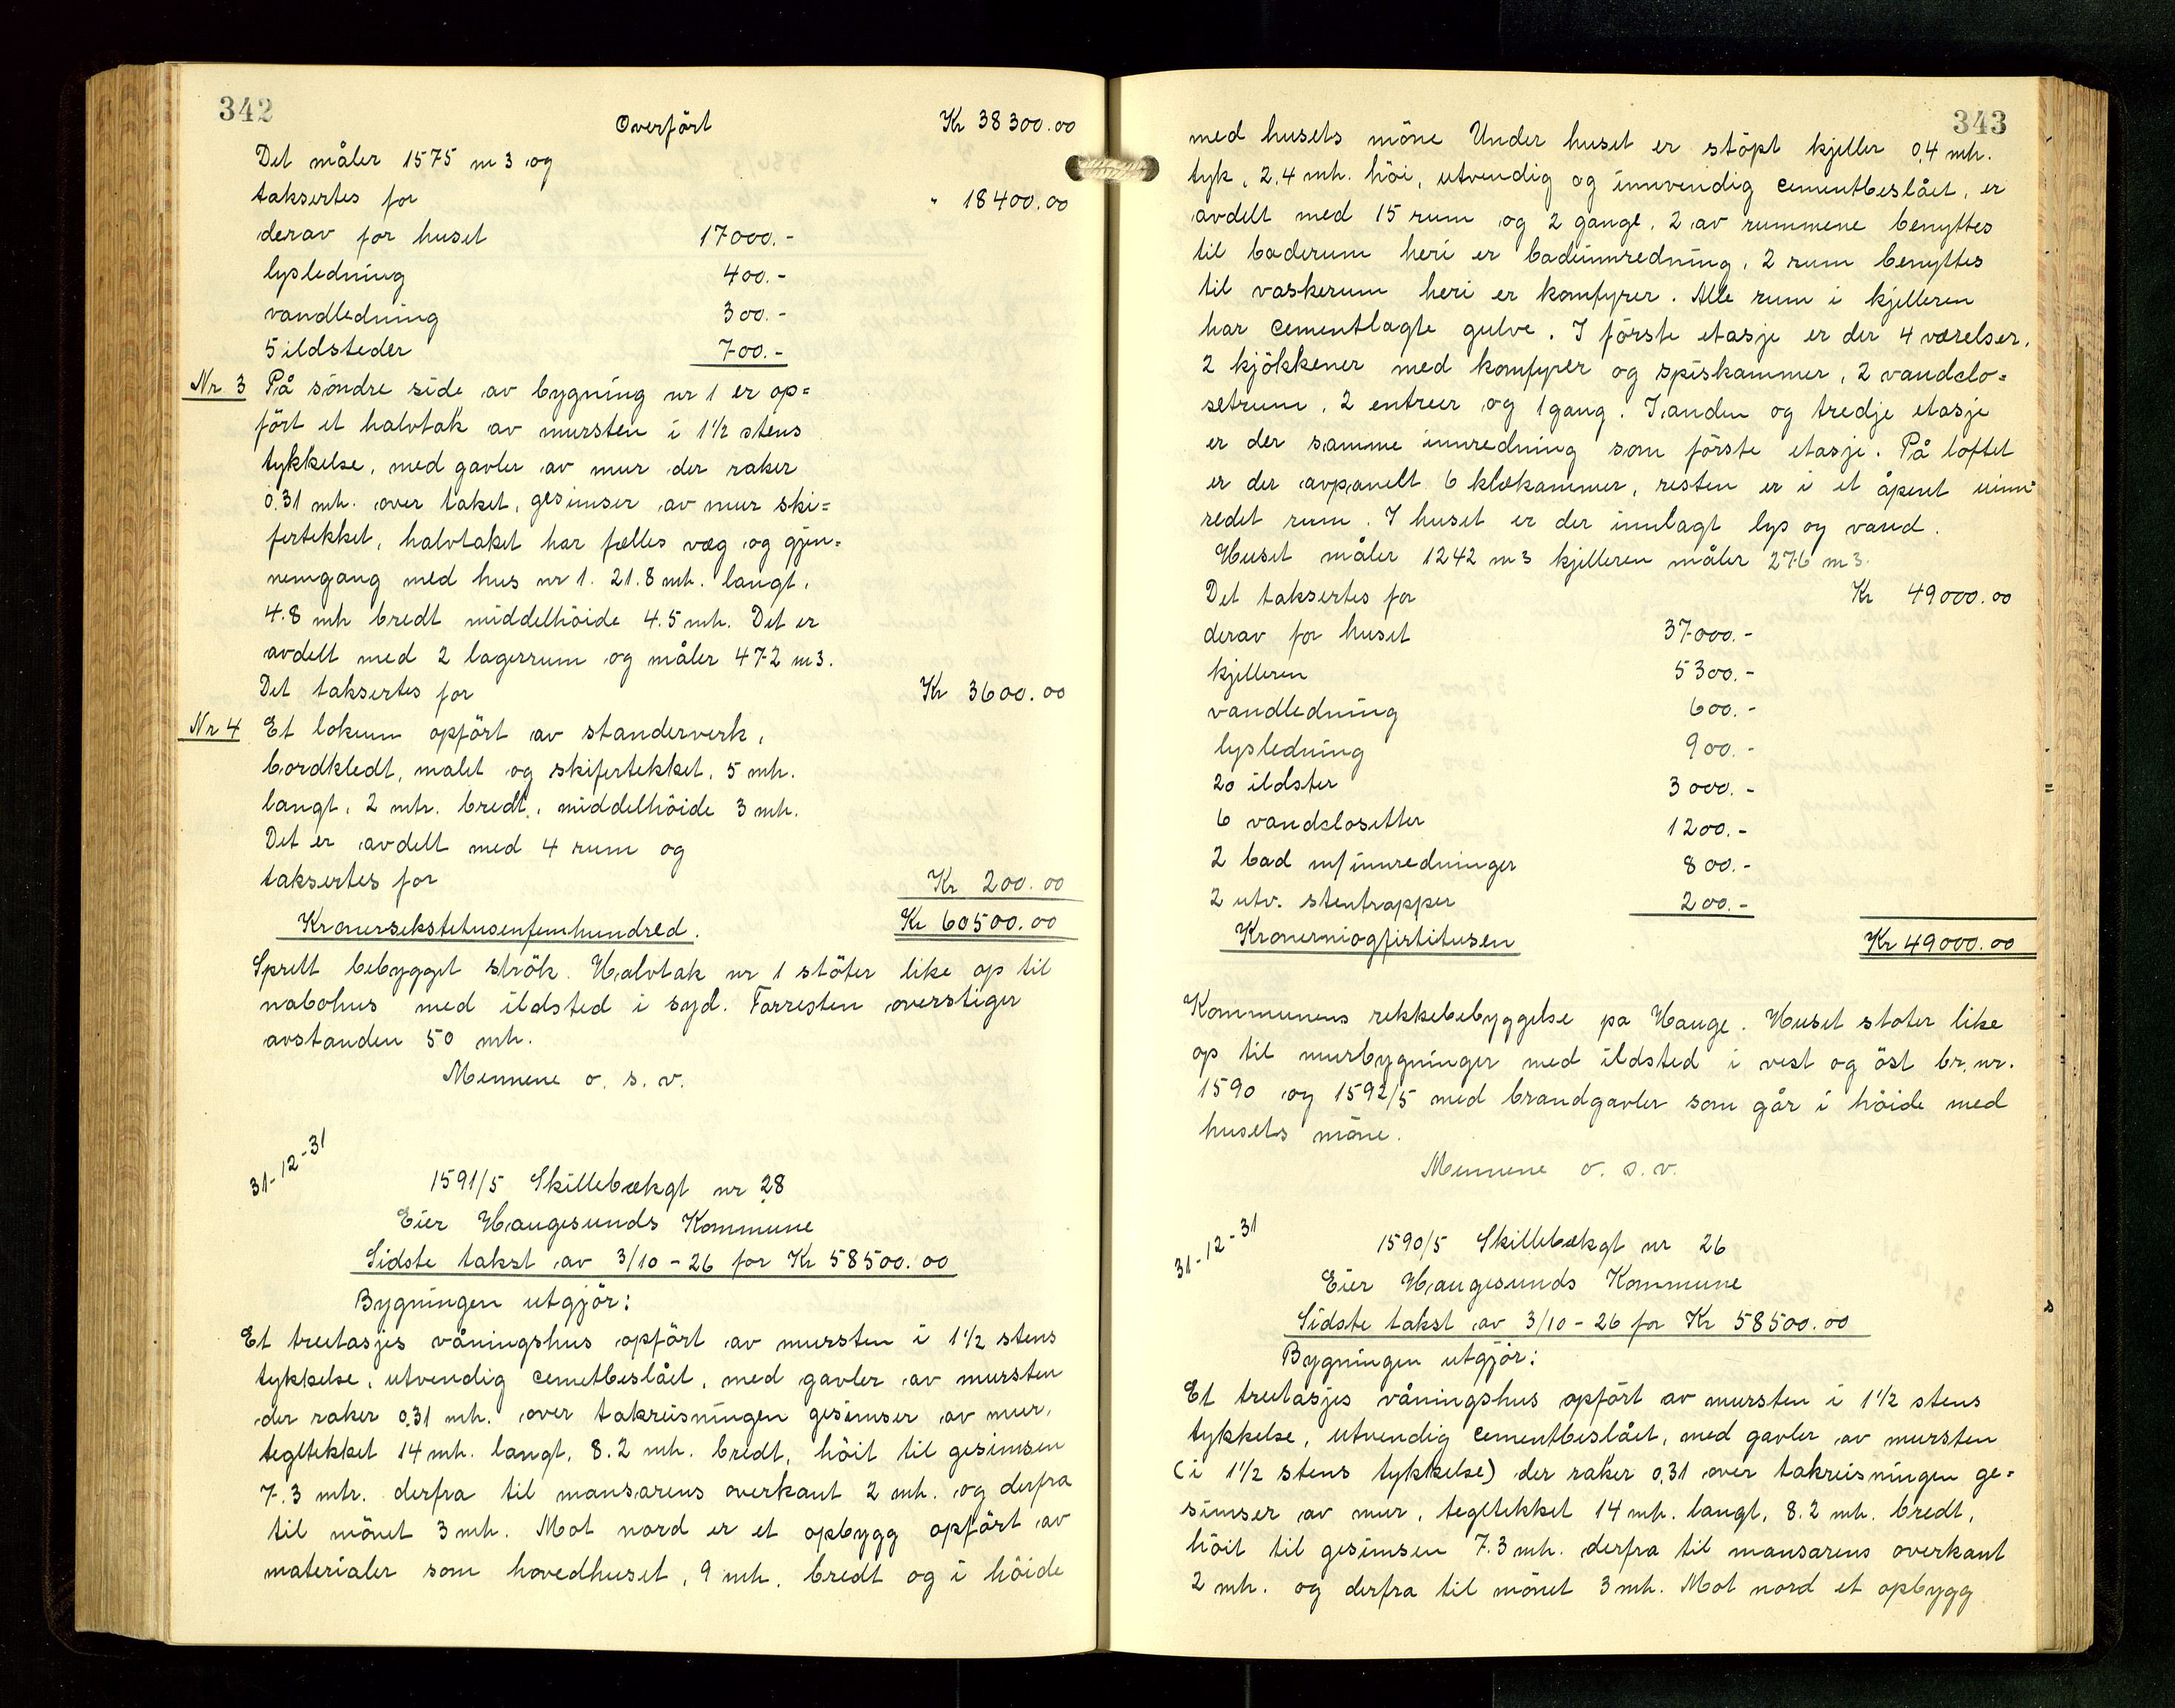 342
Overfört Kr 38300.00
Det måler 1575 m3 og
taksertes for " 18400.00
derav for huset 17000.-
lysledning 400.-
vandledning 300.-
5 ildsteder 700.-
Nr 3 På söndre side av bygning nr 1 er op=
fört et halvtak av mursten i 1½ stens
tykkelse, med gavler av mur der raker
0.31 mtr. over taket, gesimser av mur ski=
fertekket, halvtaket har fælles væg og gjen=
nemgang med hus nr 1. 21.8 mtr. langt,
4.8 mtr bredt middelhöide 4.5 mtr. Det er
avdelt med 2 lagerrum og måler 472 m3.
Det taksertes for Kr 3600.00
Nr 4 Et lokum opfört av standerverk,
bordkledt, malet og skifertekket, 5 mtr.
langt, 2 mtr. bredt, middelhöide 3 mtr.
Det er avdelt med 4 rum og
taksertes for Kr 200.00
Kronersekstitusenfemhundred. Kr 60500.00
Spredt bebygget strök. Halvtak nr 1 stöter like op til
nabohus med ildsted i syd. Forresten overstiger
avstanden 50 mtr.
Mennene o. s. v.
31-12-31
1591/5 Skillebækgt nr 28
Eier Haugesunds Kommune
Sidste takst av 3/10-26 for Kr 58500.00
Bygningen utgjör:
Et treetasjes våningshus opfört av mursten i 1½ stens
tykkelse, utvendig cemetbeslået, med gavler av mursten
der raker 0.31 mtr. over takreisningen gesimser av mur,
tegltekket 14 mtr. langt, 8.2 mtr. bredt, höit til gesimsen
7.3 mtr. derfra til mansarens overkant 2 mtr. og derfra
til mönet 3 mtr. Mot nord er et opbygg opfört av
materialer som hovedhuset, 9 mtr. bredt og i höide
343
med husets möne Under huset er stöpt kjeller 0,4 mtr.
tyk, 2,4 mtr. höi, utvendig og innvendig cementbeslået, er
avdelt med 15 rum og 2 gange, 2 av rummene benyttes
til baderum heri er badeinnredning, 2 rum benyttes
til vaskerum heri er komfyrer. Alle rum i kjelleren
har cementlagte gulve. I förste etasje er der 4 værelser,
2 kjökkener med komfyrer og spiskammer, 2 vandclo=
setrum, 2 entreer og 1 gang. I anden og tredje etasje
er der samme innredning som förste etasje. På loftet
er der avpanelt 6 klækammer, resten er i et åpent uinn=
redet rum. I huset er der innlagt lys og vand.
Huset måler 1242 m3 kjelleren måler 276 m3.
Det taksertes for Kr 49000.00
derav for huset 37000.-
kjelleren 5300.-
vandledning 600.-
lysledning 900.-
20 ildster 3000.-
6 vandclosetter 1200.-
2 bad m/innredninger 800.-
2 utv. stentrapper 200.-
Kronerniogfirtitusen Kr 49000.00
Kommunens rekkebebyggelse pa Hauge. Huset stöter like
op til murbygninger med ildsted i vest og öst br.nr.
1590 og 1592/5 med brandgavler som går i höide med
husets möne.
Mennene o. s. v.
31-12-31
1590/5 Skillebækgt nr 26
Eier Haugesunds Kommune
Sidste takst av 3/10-26 for Kr 58500.00
Bygningen utgjör:
Et treetasjes våningshus opfört av mursten i 1½ stens
tykkelse, utvendig cementbeslået, med gavler av mursten
(i 1½ stens tykkelse) der raker 0,31 over takreisningen ge=
simser av mur, tegltekket 14 mtr. langt, 8.2 mtr. bredt,
höit til gesimsen 7.3 mtr. derfra til mansarens overkant
2 mtr. og derfra til mönet 3 mtr. Mot nord et opbygg